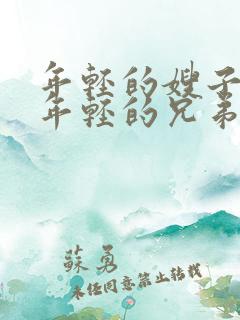 年轻的嫂子
年轻的兄弟
蘇勇
未经同意禁止转载